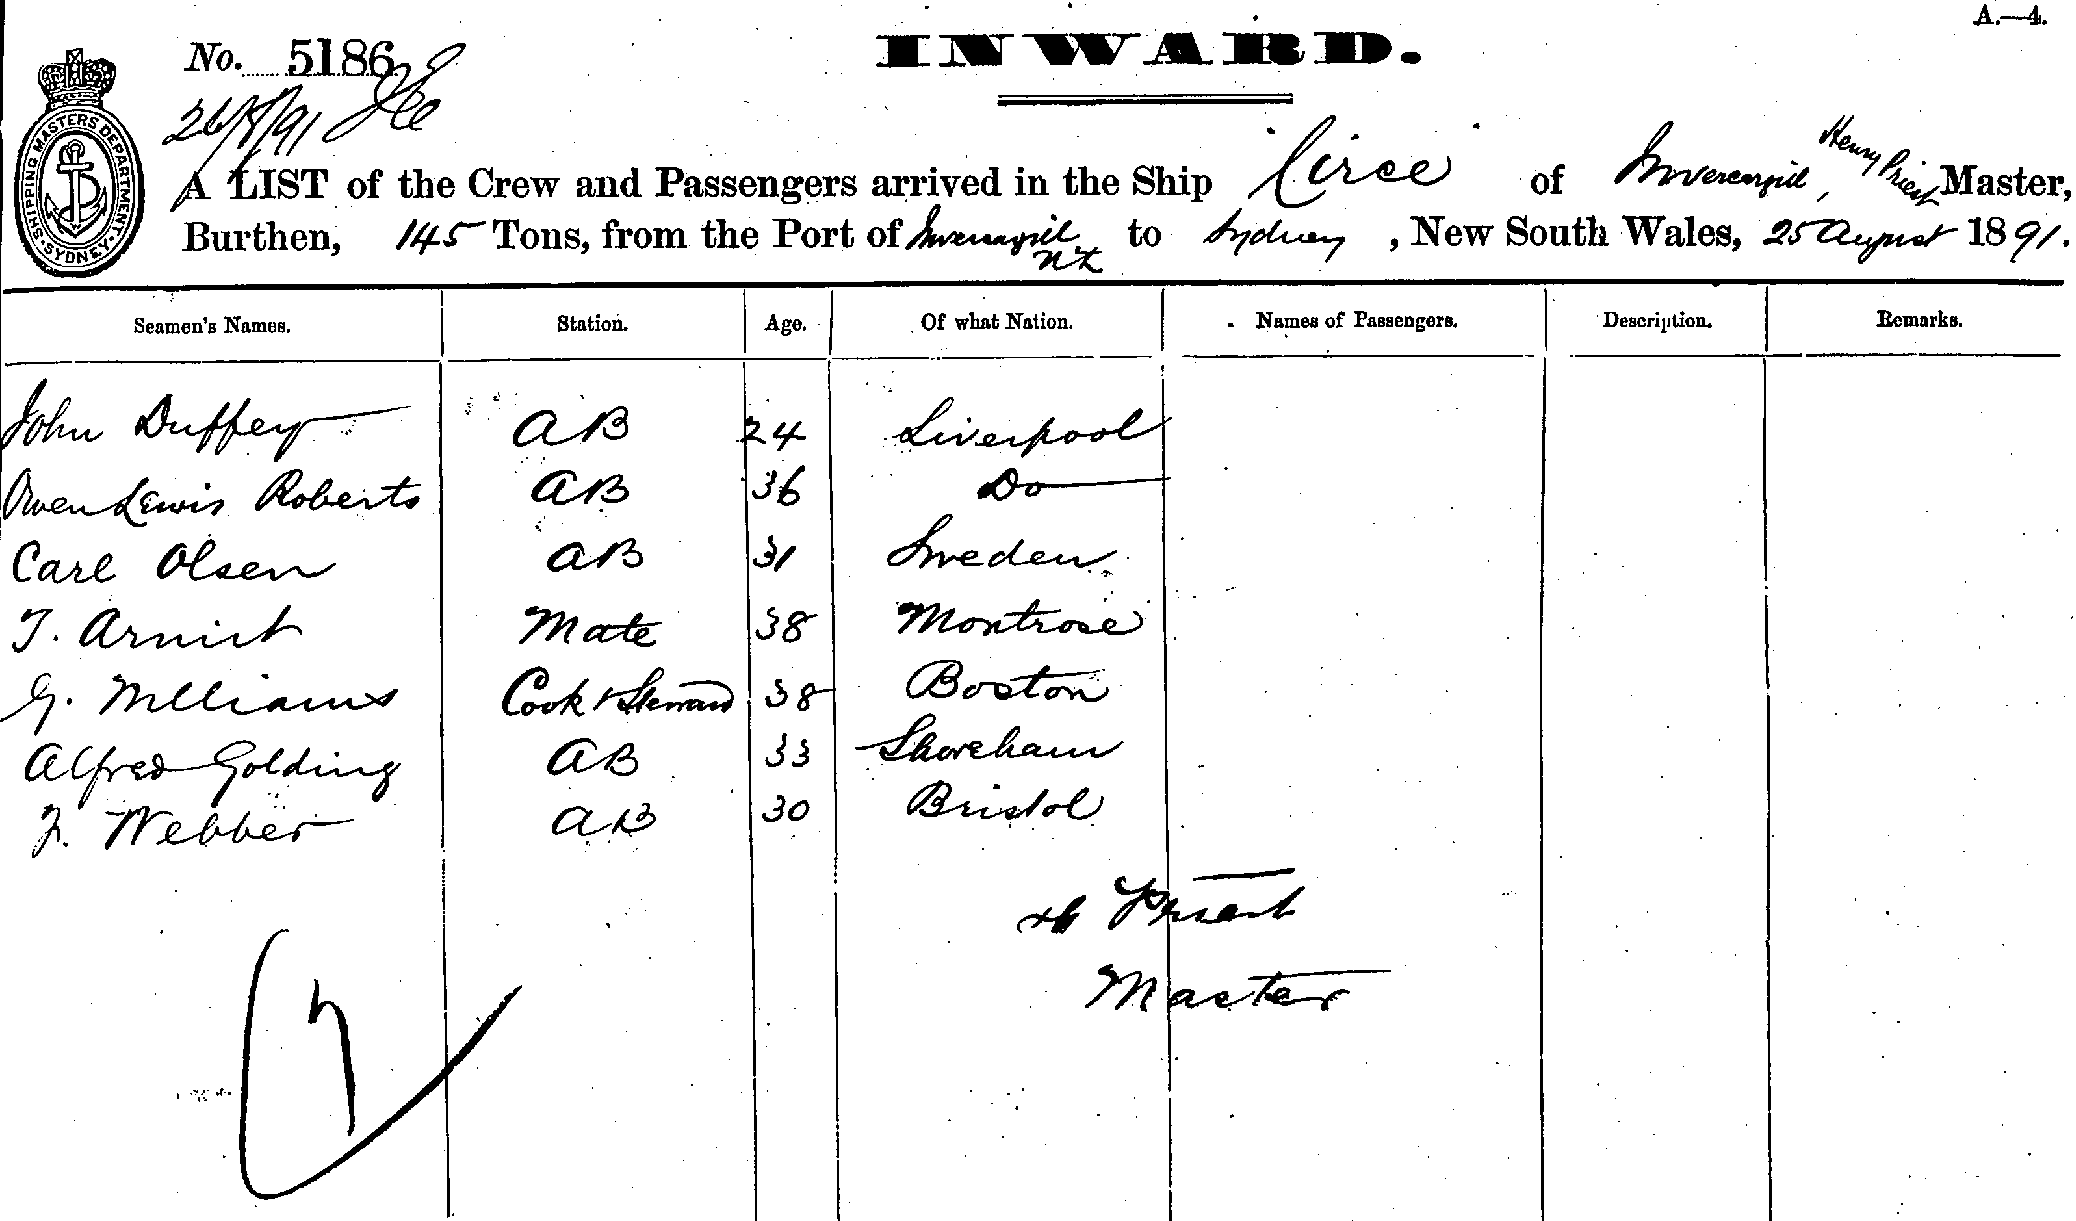 A.—4.
INWARD.
No. 5186
26/8/91
SHIPPING MASTERS DEPARTMENT. SYDNEY.
A LIST of the Crew and Passengers arrived in the Ship "Circe" of Invercargill, Henry Priest Master,
Burthen, 145 Tons, from the Port of Invercargill NZ to Sydney, New South Wales, 25 August 1891.
Seamen's Names. Station. Age. Of what Nation. Names of Passengers. Description. Remarks.
John Duffey AB 24 Liverpool
Owen Lewis Roberts AB 36 Do
Carl Olsen AB 31 Sweden
T. Mate 38 Montrose
G. Williams Cook & Steward 38 Boston
Alfred Golding AB 33 Shoreham
F. Webber AB 30 Bristol
H Priest
Master
7